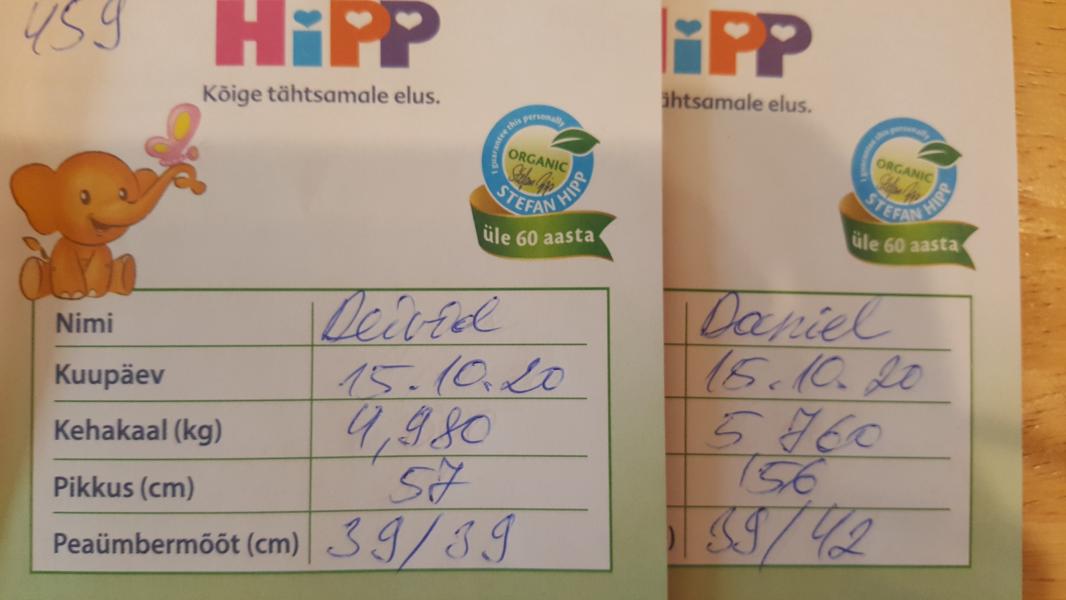 459
HiPP
Kõige tähtsamale elus.
I guarantee this personally
ORGANIC
Stefan Hipp
STEFAN HIPP
üle 60 aasta
Nimi Deivid
Kuupäev 15.10.20
Kehakaal (kg) 4,980
Pikkus (cm) 57
Peaümbermõõt (cm) 39/39
iPP
ähtsamale elus.
I guarantee this personally
ORGANIC
Stefan Hipp
STEFAN HIPP
üle 60 aasta
Daniel
15.10.20
5 760
56
) 39/42